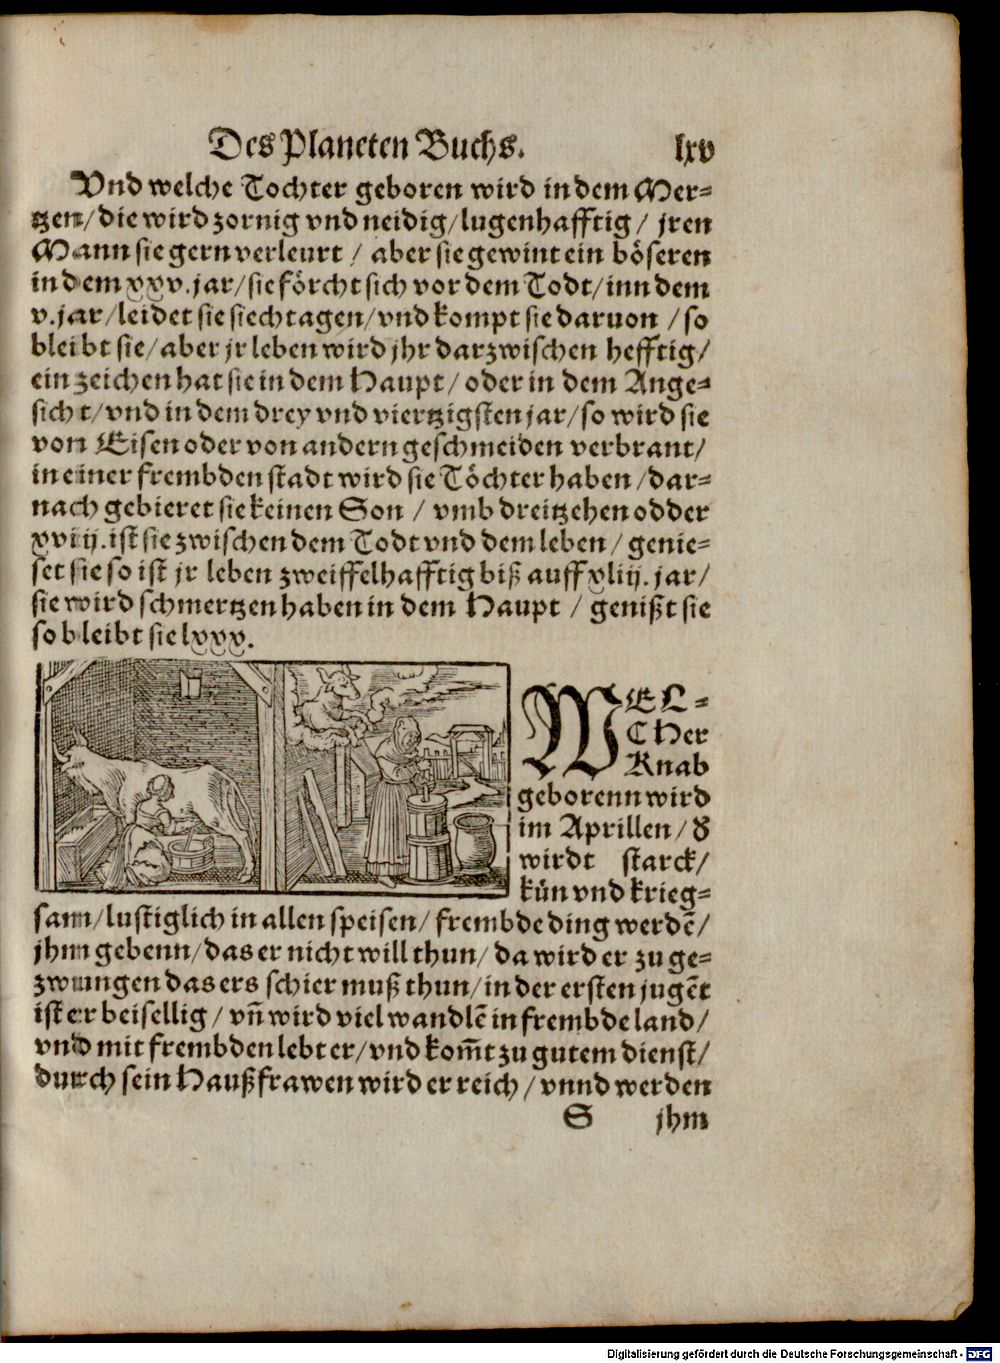 Des Planeten Buchs. lxv
Vnd welche Tochter geboren wird in dem Mer=
tzen/die wird zornig vnd neidig/lugenhafftig/ jren
Mann sie gern verleurt/ aber sie gewint ein böseren
in dem xxv.jar/sie förcht sich vor dem Todt/inn dem
v.jar/leidet sie siechtagen/vnd kompt sie daruon/so
bleibt sie/aber jr leben wird jhr darzwischen hefftig/
ein zeichen hat sie in dem Haupt/oder in dem Ange=
sicht/vnd in dem drey vnd viertzigsten jar/so wird sie
von Eisen oder von andern geschmeiden verbrant/
in einer frembden stadt wird sie Töchter haben/dar=
nach gebieret sie keinen Son/ vmb dreitzehen odder
xviij.ist sie zwischen dem Todt vnd dem leben/ genie=
set sie so ist jr leben zweiffelhafftig biß auff xliij.jar/
sie wird schmertzen haben in dem Haupt/ genißt sie
so bleibt sie lxxx.
WEL=
CHer
Knab
geborenn wird
im Aprillen/d
wirdt starck/
kün vnd krieg=
sam/lustiglich in allen speisen/frembde ding werdē/
jhm gebenn/das er nicht will thun/da wird er zu ge=
zwungen das ers schier muß thun/in der ersten jugēt
ist er beisellig/vñ wird viel wandlē in frembde land/
vnd mit frembden lebt er/vnd kom̄t zu gutem dienst/
durch sein Haußfrawen wird er reich/vnnd werden
S jhm
Digitalisierung gefördert durch die Deutsche Forschungsgemeinschaft - DFG